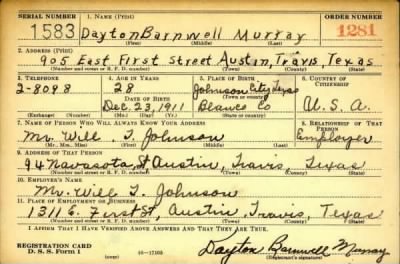 SERIAL NUMBER 1. NAME (Print) ORDER NUMBER
1583 Dayton Barnwell Murray 1281
(First) (Middle) (Last)
2. ADDRESS (Print)
905 East First Street Austin, Travis, Texas
(Number and street or R. F. D. number) (Town) (County) (State)
3. TELEPHONE 4. AGE IN YEARS 5. PLACE OF BIRTH 6. COUNTRY OF CITIZENSHIP
2-8098 28 Johnson City, Texas
DATE OF BIRTH (Town or county)
Dec. 23, 1911 Blanco Co U.S.A.
(Exchange) (Number) (Mo.) (Day) (Yr.) (State or country)
7. NAME OF PERSON WHO WILL ALWAYS KNOW YOUR ADDRESS 8. RELATIONSHIP OF THAT PERSON
Mr. Will T. Johnson Employer
(Mr., Mrs., Miss) (First) (Middle) (Last)
9. ADDRESS OF THAT PERSON
94 Navasota St Austin, Travis, Texas
(Number and street or R. F. D. number) (Town) (County) (State)
10. EMPLOYER'S NAME
Mr. Will T. Johnson
11. PLACE OF EMPLOYMENT OR BUSINESS
1311 E. First St, Austin, Travis, Texas
(Number and street or R. F. D. number) (Town) (County) (State)
I AFFIRM THAT I HAVE VERIFIED ABOVE ANSWERS AND THAT THEY ARE TRUE.
REGISTRATION CARD
D. S. S. Form 1 16-17105 Dayton Barnwell Murray